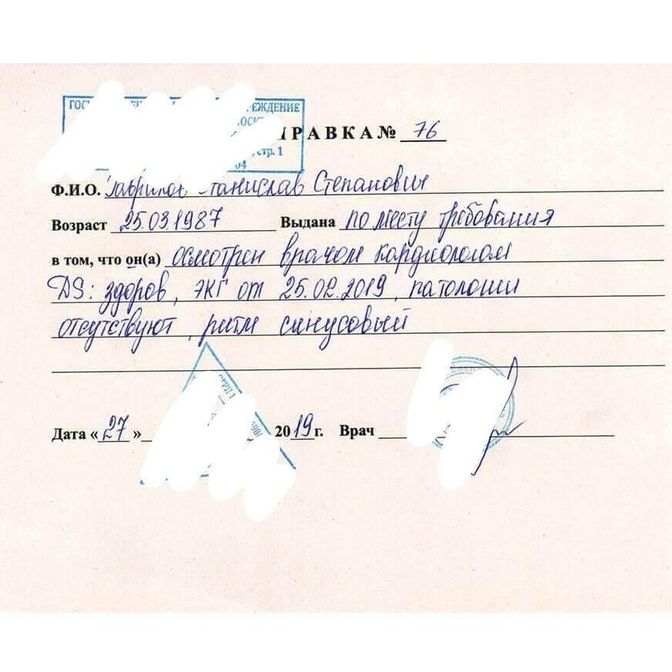 ГОС РЕЖДЕНИЕ
стр. 1
04
РАВКА № 76
Ф.И.О. Станислав Степанович
Возраст 25.03.1987 Выдана по месту требования
в том, что он(а) осмотрен врачом кардиологом
DS: здоров, ЭКГ от 25.02.2019, патологии
отсутствуют, ритм синусовый
Дата « 27 » 2019 г. Врач